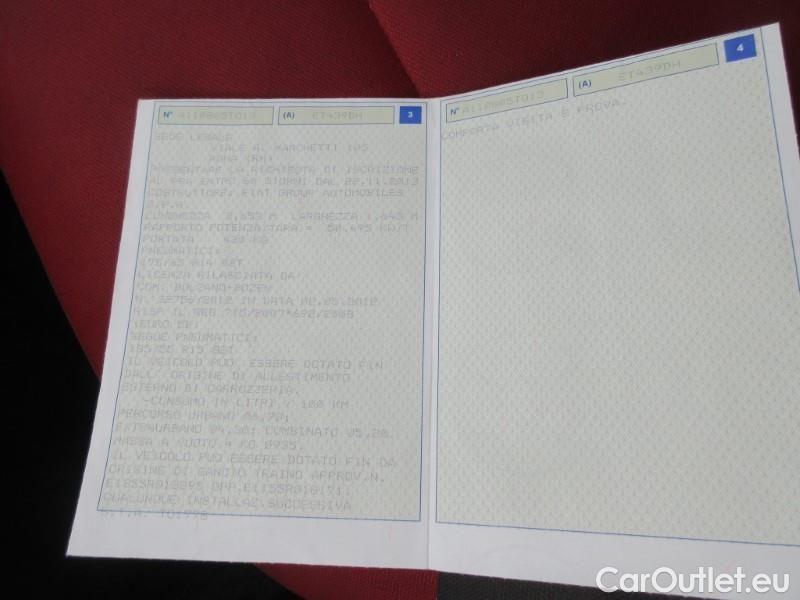 N° A110805TO13 (A) ET439DH 3
SEDE LEGALE
VIALE A. MARCHETTI 105
ROMA (RM)
PRESENTARE LA RICHIESTA DI ISCRIZIONE
AL PRA ENTRO 60 GIORNI DAL 22.11.2013
COSTRUTTORE: FIAT GROUP AUTOMOBILES
S.P.A.
LUNGHEZZA 3,653 M LARGHEZZA 1,640 M
RAPPORTO POTENZA/TARA = 50,495 KW/T
PORTATA 430 KG
PNEUMATICI:
175/65 R14 82T
LICENZA RILASCIATA DA
COM. BOLZANO-BOZEN
N. 32756/2012 IN DATA 02.05.2012
RISP IL REG 715/2007*692/2008
(EURO 5B)
SEGUE PNEUMATICI:
185/55 R15 82T
IL VEICOLO PUO' ESSERE DOTATO FIN
DALL' ORIGINE DI ALLESTIMENTO
ESTERNO DI CARROZZERIA.
-CONSUMO IN LITRI X 100 KM
PERCORSO URBANO 06,70;
EXTRAURBANO 04,30; COMBINATO 05,20.
MASSA A VUOTO = KG 0935.
IL VEICOLO PUO ESSERE DOTATO FIN DA
ORIGINE DI GANCIO TRAINO APPROV.N.
OPP.E1155R010171.
QUALUNQUE INSTALLAZ.SUCCESSIVA
N° A110805TO13 (A) ET439DH 4
COMPORTA VISITA E PROVA.
CarOutlet.eu